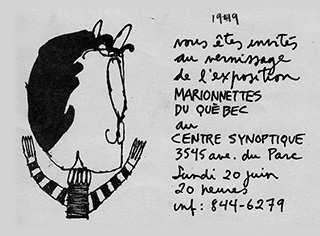 vous êtes invités
au vernissage
de l'exposition
MARIONNETTES
DU QUÈBEC
au
CENTRE SYNOPTIQUE
3545 ave. du Parc
Lundi 20 juin
20 heures
inf: 844-6279